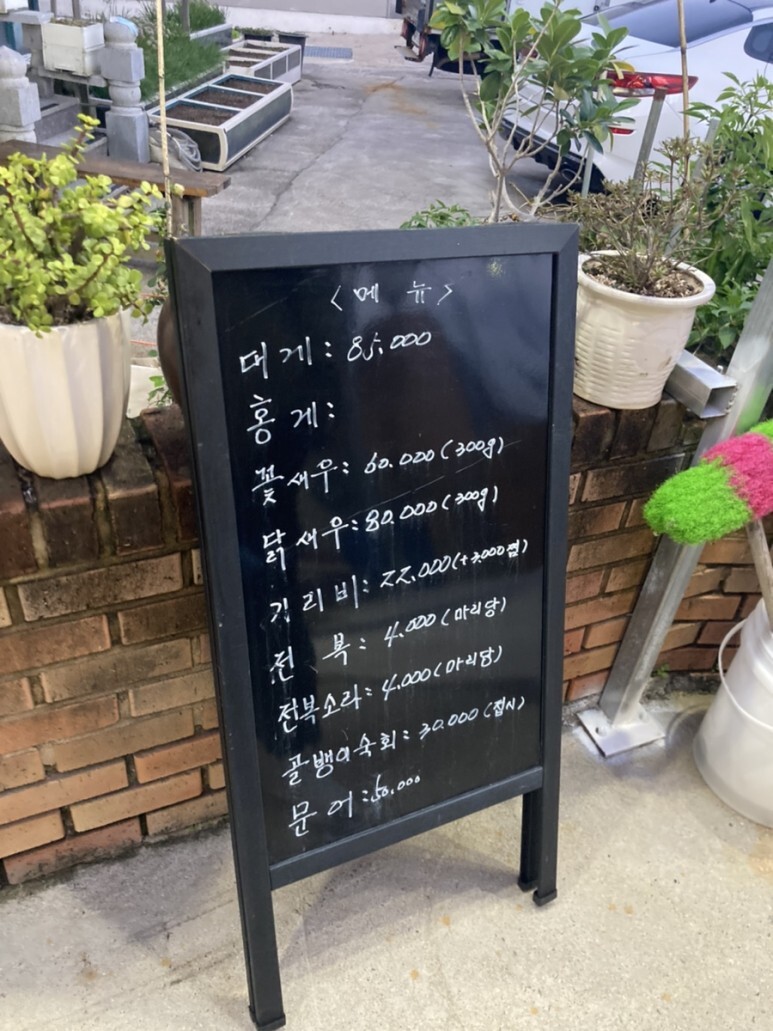 <메 뉴>
대게: 85.000
홍게:
꽃새우: 60.000(300g)
닭새우: 80.000(300g)
가리비: 22.000(+3,000찜)
전 복: 4.000(마리당)
전복소라: 4.000(마리당)
골뱅이숙회: 30.000(접시)
문어: 50.000